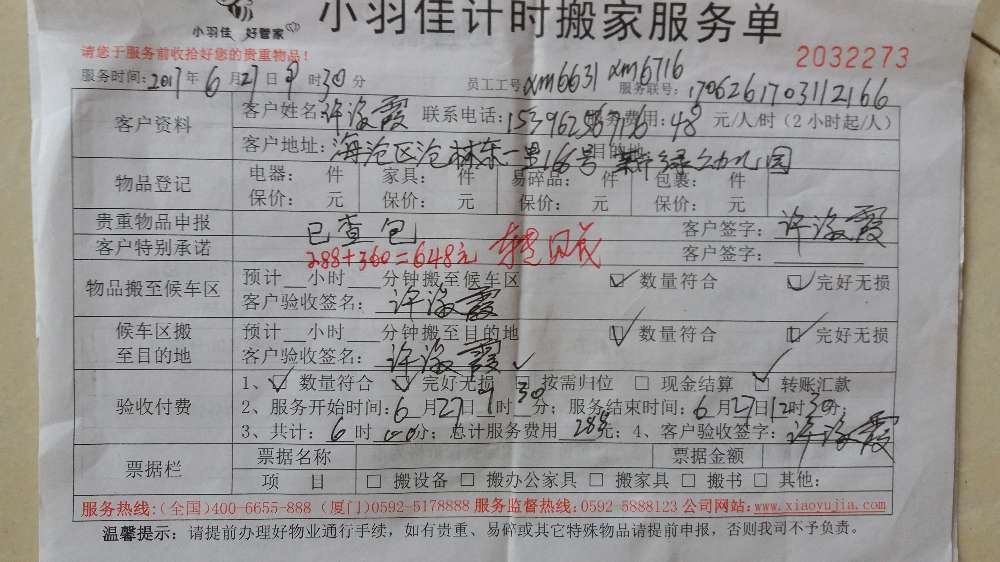 小羽佳 好管家
小羽佳计时搬家服务单
请您于服务前收拾好您的贵重物品!
2032273
服务时间: 2017年 6 月 27 日 9 时 30 分 员工工号: xm6631 xm6716 服务联号: 170626170311 2166
客户资料
客户姓名: 许海霞 联系电话: 服务费用: 48 元/人/时(2小时起/人)
客户地址: 海沧区沧林东一里166号 目的地 幼儿园
物品登记
电器: 件 家具: 件 易碎品: 件 包裹: 件
保价: 元 保价: 元 保价: 元 保价: 元
贵重物品申报 已查包 客户签字: 许海霞
客户特别承诺 288+360=648元 客户签字:
物品搬至候车区
预计__小时___分钟搬至候车区 ☑ 数量符合 ☑ 完好无损
客户验收签名: 许海霞
候车区搬至目的地
预计__小时___分钟搬至目的地 ☑ 数量符合 ☑ 完好无损
客户验收签名: 许海霞
验收付费
1、☑ 数量符合 ☑ 完好无损 ☑ 按需归位 □ 现金结算 ☑ 转账汇款
2、服务开始时间: 6 月 27 日 9 时 30 分; 服务结束时间: 6 月 27 日 12 时 30 分;
3、共计: 6 时 00 分; 总计服务费用 288 元; 4、客户验收签字: 许海霞
票据栏
票据名称 票据金额
项 目 □ 搬设备 □ 搬办公家具 □ 搬家具 □ 搬书 □ 其他:
服务热线:(全国)400-6655-888 (厦门)0592-5178888 服务监督热线: 0592-5888123 公司网站: www.xiaoyujia.com
温馨提示: 请提前办理好物业通行手续, 如有贵重、易碎或其它特殊物品请提前申报, 否则我司不予负责。